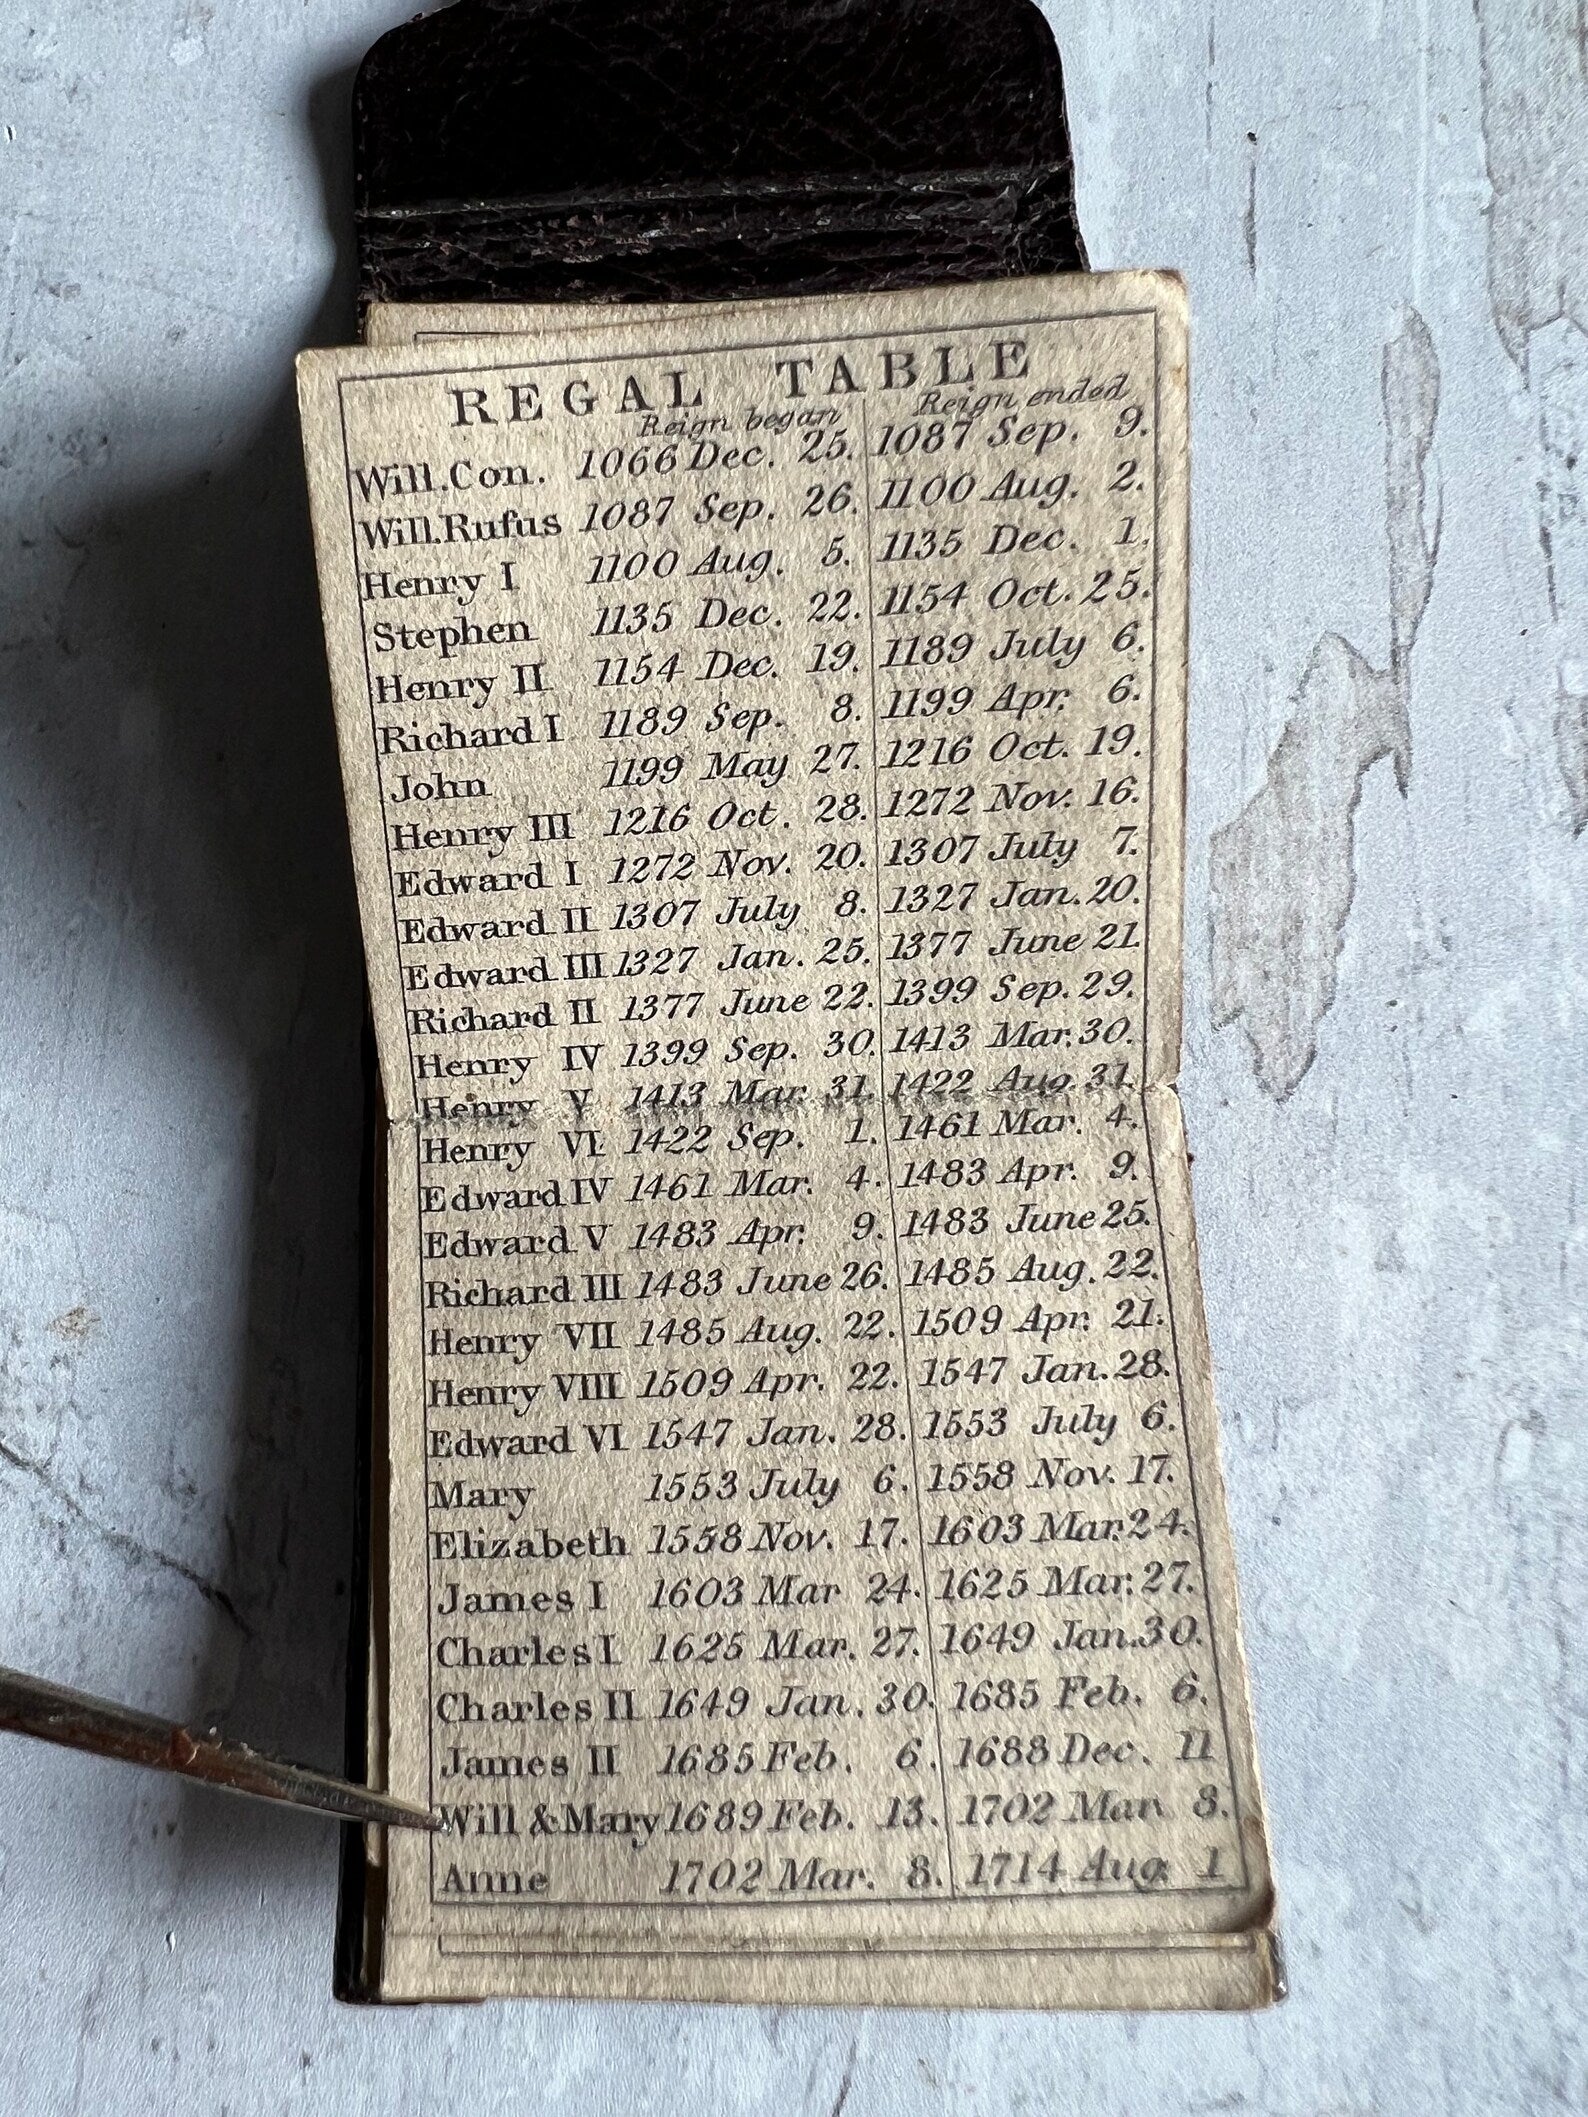 REGAL TABLE
Reign began Reign ended
Will.Con. 1066 Dec. 25. 1087 Sep. 9.
Will.Rufus 1087 Sep. 26. 1100 Aug. 2.
Henry I 1100 Aug. 5. 1135 Dec. 1.
Stephen 1135 Dec. 22. 1154 Oct. 25.
Henry II 1154 Dec. 19. 1189 July 6.
Richard I 1189 Sep. 8. 1199 Apr. 6.
John 1199 May 27. 1216 Oct. 19.
Henry III 1216 Oct. 28. 1272 Nov. 16.
Edward I 1272 Nov. 20. 1307 July 7.
Edward II 1307 July 8. 1327 Jan. 20.
Edward III 1327 Jan. 25. 1377 June 21.
Richard II 1377 June 22. 1399 Sep. 29.
Henry IV 1399 Sep. 30. 1413 Mar. 30.
Henry V 1413 Mar. 31. 1422 Aug. 31.
Henry VI 1422 Sep. 1. 1461 Mar. 4.
Edward IV 1461 Mar. 4. 1483 Apr. 9.
Edward V 1483 Apr. 9. 1483 June 25.
Richard III 1483 June 26. 1485 Aug. 22.
Henry VII 1485 Aug. 22. 1509 Apr. 21.
Henry VIII 1509 Apr. 22. 1547 Jan. 28.
Edward VI 1547 Jan. 28. 1553 July 6.
Mary 1553 July 6. 1558 Nov. 17.
Elizabeth 1558 Nov. 17. 1603 Mar. 24.
James I 1603 Mar 24. 1625 Mar. 27.
Charles I 1625 Mar. 27. 1649 Jan. 30.
Charles II 1649 Jan. 30. 1685 Feb. 6.
James II 1685 Feb. 6. 1688 Dec. 11
Will & Mary 1689 Feb. 13. 1702 Mar. 8.
Anne 1702 Mar. 8. 1714 Aug. 1